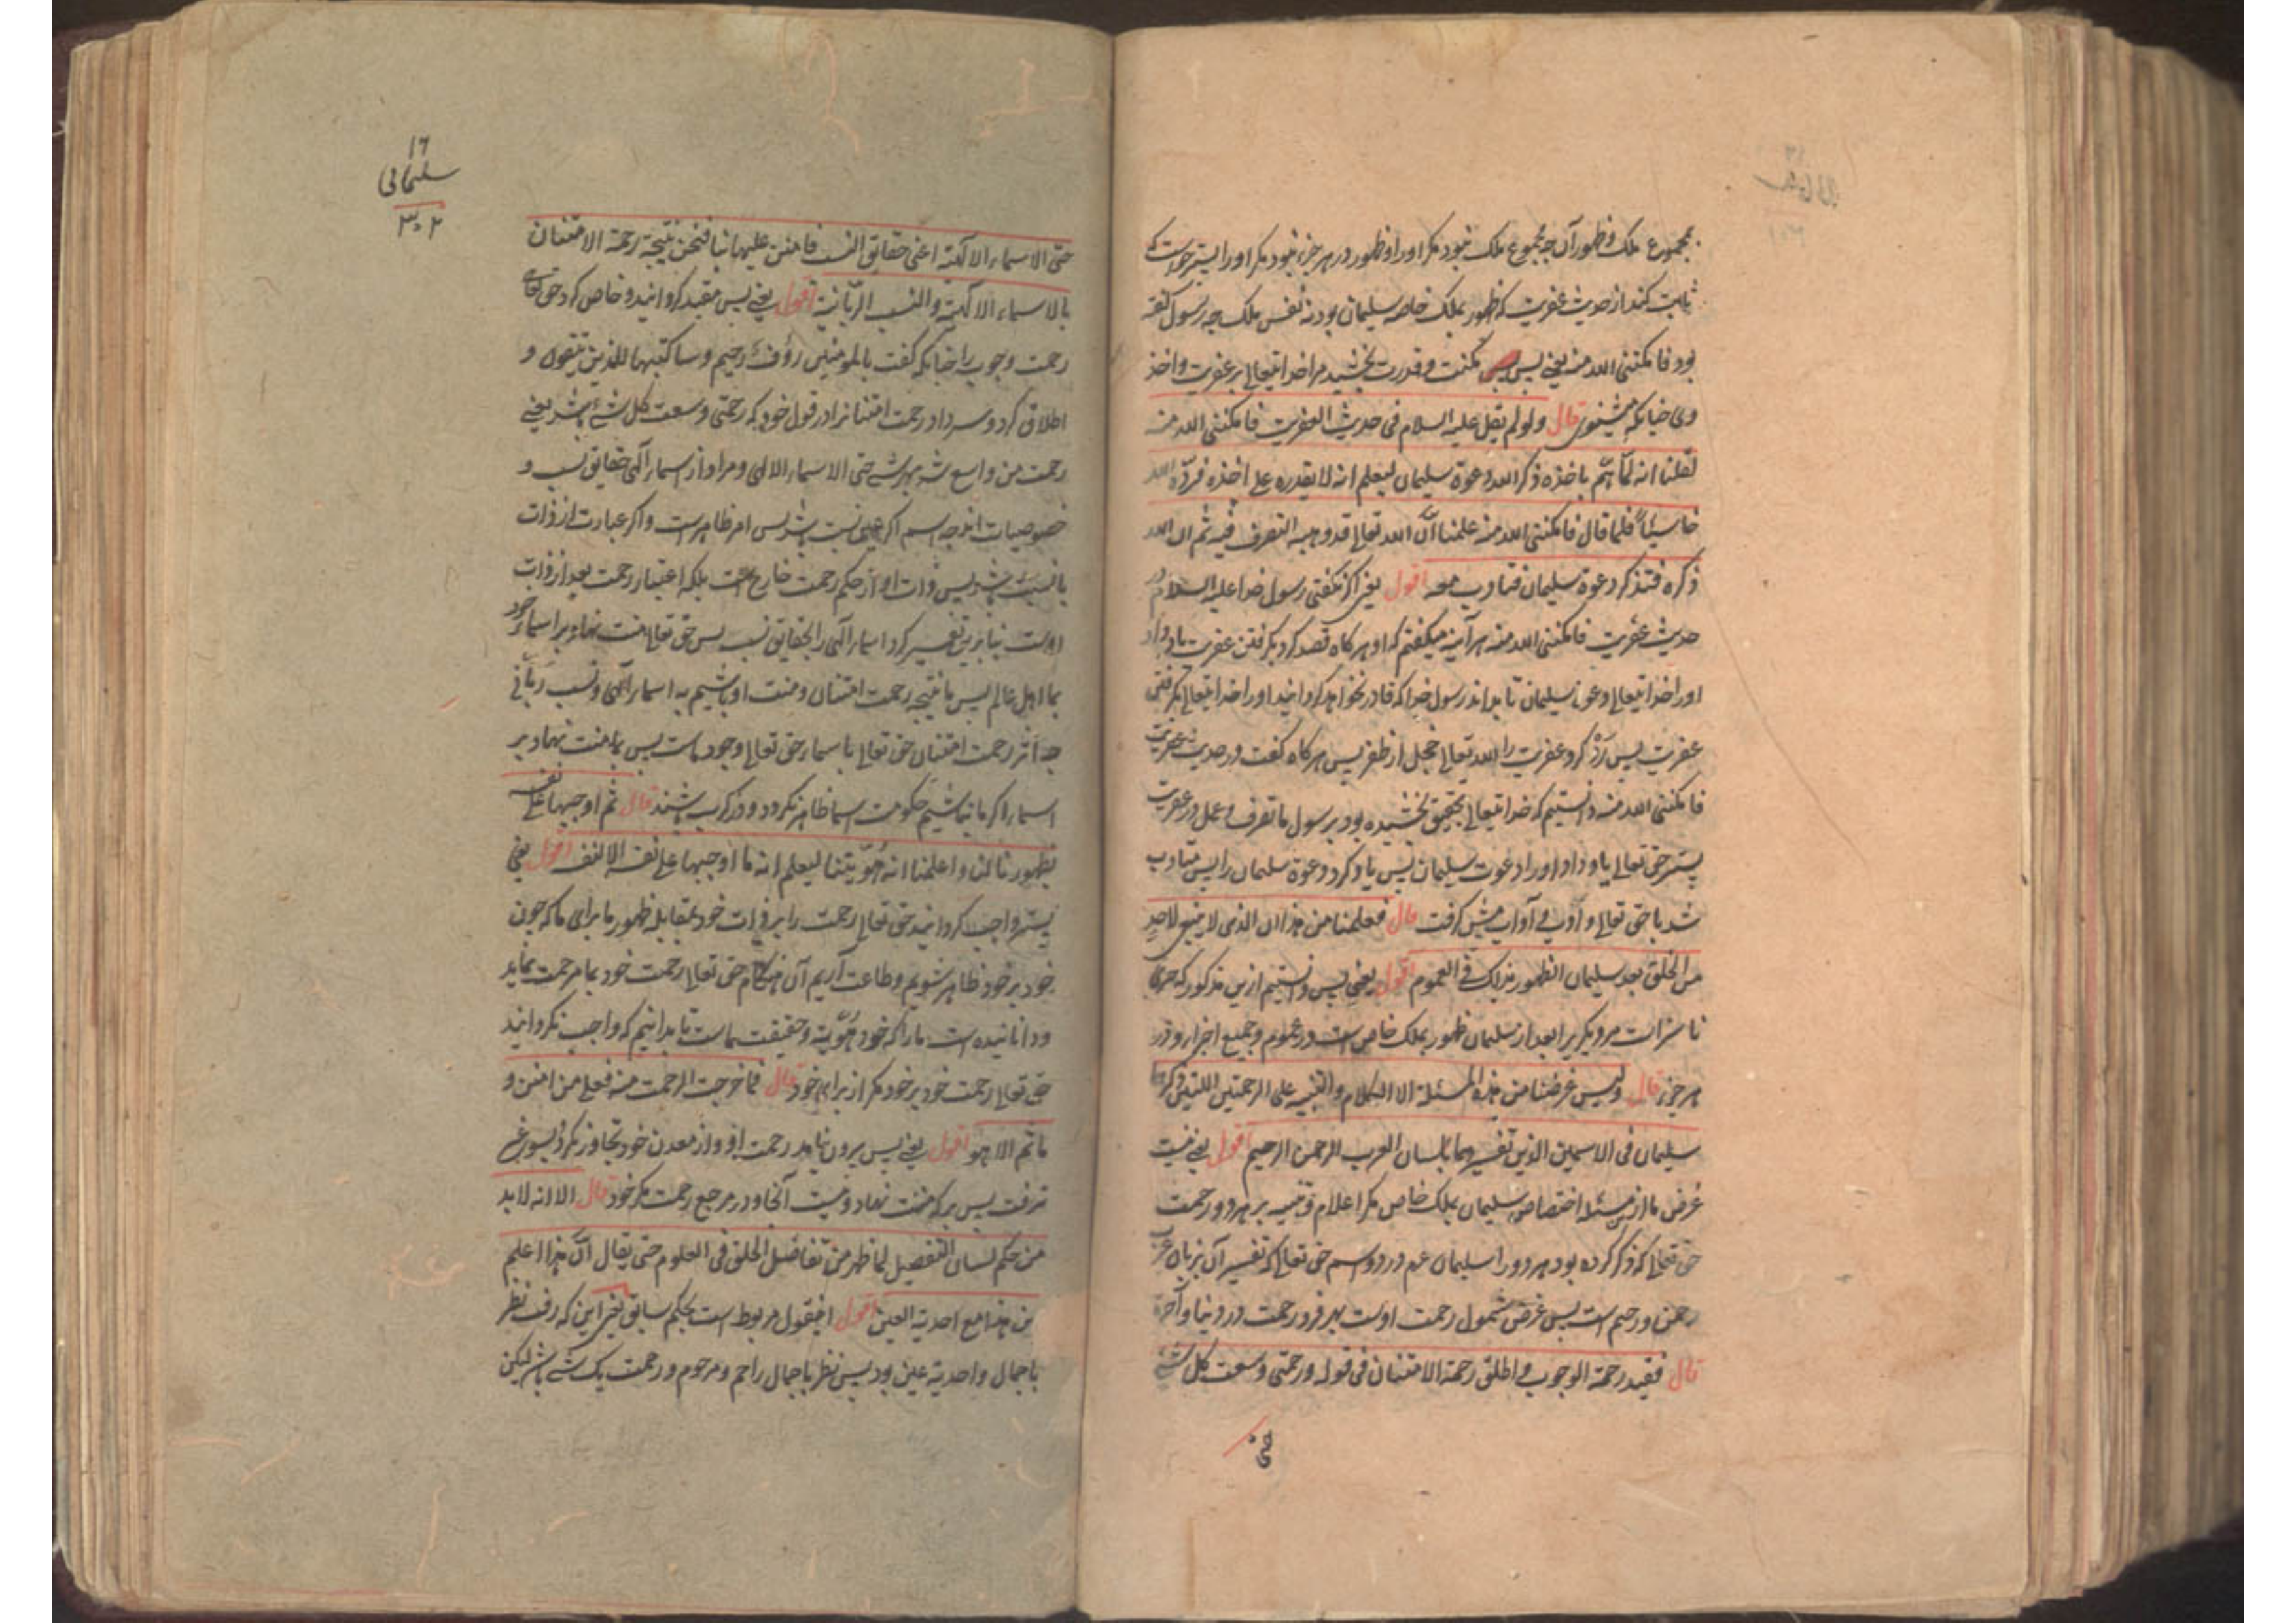 بمجموع ملک و ظهور آن چه مجموع ملک نبود مگر او را و ظهور در هر جزء نبود مگر او را پستر خواست که
ثابت کند از حدیث عفریت که ظهور بملک خاصه سلیمان بود نه نفس ملک چه رسول گفته
بود فامکننی الله منه یعنی پس مکنت و قدرت بخشید مرا خدایتعالی بر عفریت و اخذ
وی چنانکه میشنوی قال ولو لم یقل علیه السلام فی حدیث العفریت فامکننی الله منه
لقلنا انه لمّا همّ باخذه ذکره الله دعوة سلیمان لیعلم انه لا یقدره علی اخذه فردّه الله
خاسئیاً فلما قال فامکننی الله منه علمنا انّ الله تعالی قد وهبه التصرف فیه ثم ان الله
ذکره فتذکر دعوة سلیمان فتأدب معه اقول یعنی اگر نگفتی رسول خدا علیه السلام در
حدیث عفریت فامکننی الله منه هر آینه میگفتم که او هرگاه قصد کرد بگرفتن عفریت یاد داد
او را خدایتعالی دعوة سلیمان تا بداند رسول خدا که قادر نخواهد گردانید او را خدایتعالی بگرفتن
عفریت پس ردّ کرد عفریت را الله تعالی خجل از ظفر پس هرگاه گفت در حدیث عفریت
فامکننی الله منه دانستیم که خدایتعالی بتحقیق بخشیده بود برسول ما تصرف و عمل در عفریت
پستر حق تعالی یاد داد او را دعوت سلیمان پس یاد کرد دعوة سلیمان را پس متأدب
شد با حق تعالی و آدب و آداب پیش گرفت قال فعلمنا من هذا ان الذی لا ینبغی لاحدٍ
من الخلق بعد سلیمان الظهور بذلک فی العموم اقول یعنی پس دانستیم ازین مذکور که چیزی
ناسزاست مر دیگریرا بعد از سلیمان ظهور بملک خاص است در عموم و جمیع اجزاء و در
هر جزء قال ولیس غرضنا من هذه المسئلة الا الکلام والتنبیه علی الرحمتین اللتین ذکرهما
سلیمان فی الاسمین الذین تفسیرهما بلسان العرب الرحمن الرحیم اقول یعنی نیست
غرض ما از مسئله اختصاص سلیمان بملک خاص مگر اعلام و تنبیه بر هر دو رحمت
حق تعالی که ذکر کرده بود هر دو را سلیمان عم در دو اسم حق تعالی که تفسیر آن بزبان عرب
رحمن و رحیم است پس غرض شمول رحمت اوست بهر فرد رحمت در دنیا و آخرة
قال فقید رحمة الوجوب و اطلق رحمة الامتنان فی قوله ورحمتی وسعت کل شئ
حتی
١٦
سلیمانی
٣٠٢
حتی الاسماء الالهیّة اعنی حقایق النسب فامتن علیها بنا فنحن نتیجة رحمة الامتنان
بالاسماء الالهیّة والنسب الربّانیة اقول یعنی پس مقید گردانید و خاص کرد حق تعالی
رحمت وجوب را چنانکه گفت بالمومنین رؤف رحیم و ساکتبها للذین یتقون و
اطلاق کرد و سر داد رحمت امتنانرا در قول خود که رحمتی وسعت کل شئ یعنی
رحمت من واسع شد بهر شئ حتی الاسماء الالهی و مراد از اسماء الهی حقایق نسب و
خصوصیات اند چه اسم اگر عین نسب باشد پس امر ظاهر است و اگر عبارت از ذات
با نسبت باشد پس ذات او از حکم رحمت خارج است بلکه اعتبار رحمت بعد از ذات
اوست بنابرین تفسیر کرد اسماء الهی را بحقایق نسب پس حق تعالی منت نهاد بر اسماء خود
بما اهل عالم پس ما نتیجه رحمت امتنان و منت او باشیم به اسماء الهی و نسب ربّانی
چه اثر رحمت امتنان حق تعالی با سماء حق تعالی وجود ماست پس بما منت نهاد بر
اسماء اگر ما نباشیم حکومت اسما ظاهر نگردد و در کرب باشند قال ثم اوجبها علی نفسه
بظهورنا لنا و اعلمنا انه هُوّیتنا لیعلم انه ما اوجبها علی نفسه الا لنفسه اقول یعنی
پستر واجب گردانید حق تعالی رحمت را بر ذات خود بمقابله ظهور ما برای ما که چون
خود بر خود ظاهر شویم و طاعت آریم آن هنگام حق تعالی رحمت خود بما مرحمت نماید
و دانانیده است ما را که خود هُوّیة و حقیقت ماست تا بدانیم که واجب نگردانید
حق تعالی رحمت خود بر خود مگر از برای خود قال فما خرجت الرحمت منه فعلی من امتن و
ما ثم الا هو اقول یعنی پس بیرون نیامد رحمت او و از معدن خود تجاوز نکرد بسوی غیر
نرفت پس بر که منت نهاد و نیست آنجا و در مرجع رحمت مگر خود قال الا انه لا بد
من حکم لسان التفصیل لما ظهر من تفاضل الخلق فی العلوم حتی یقال انّ هذا اعلم
من هذا مع احدیة العین اقول اینقول مربوط است بحکم سابق یعنی این که رفت نظر
باجمال و احدیة عین بود پس نظر باجمال راحم و مرحوم و رحمت یک شئ باشد لیکن